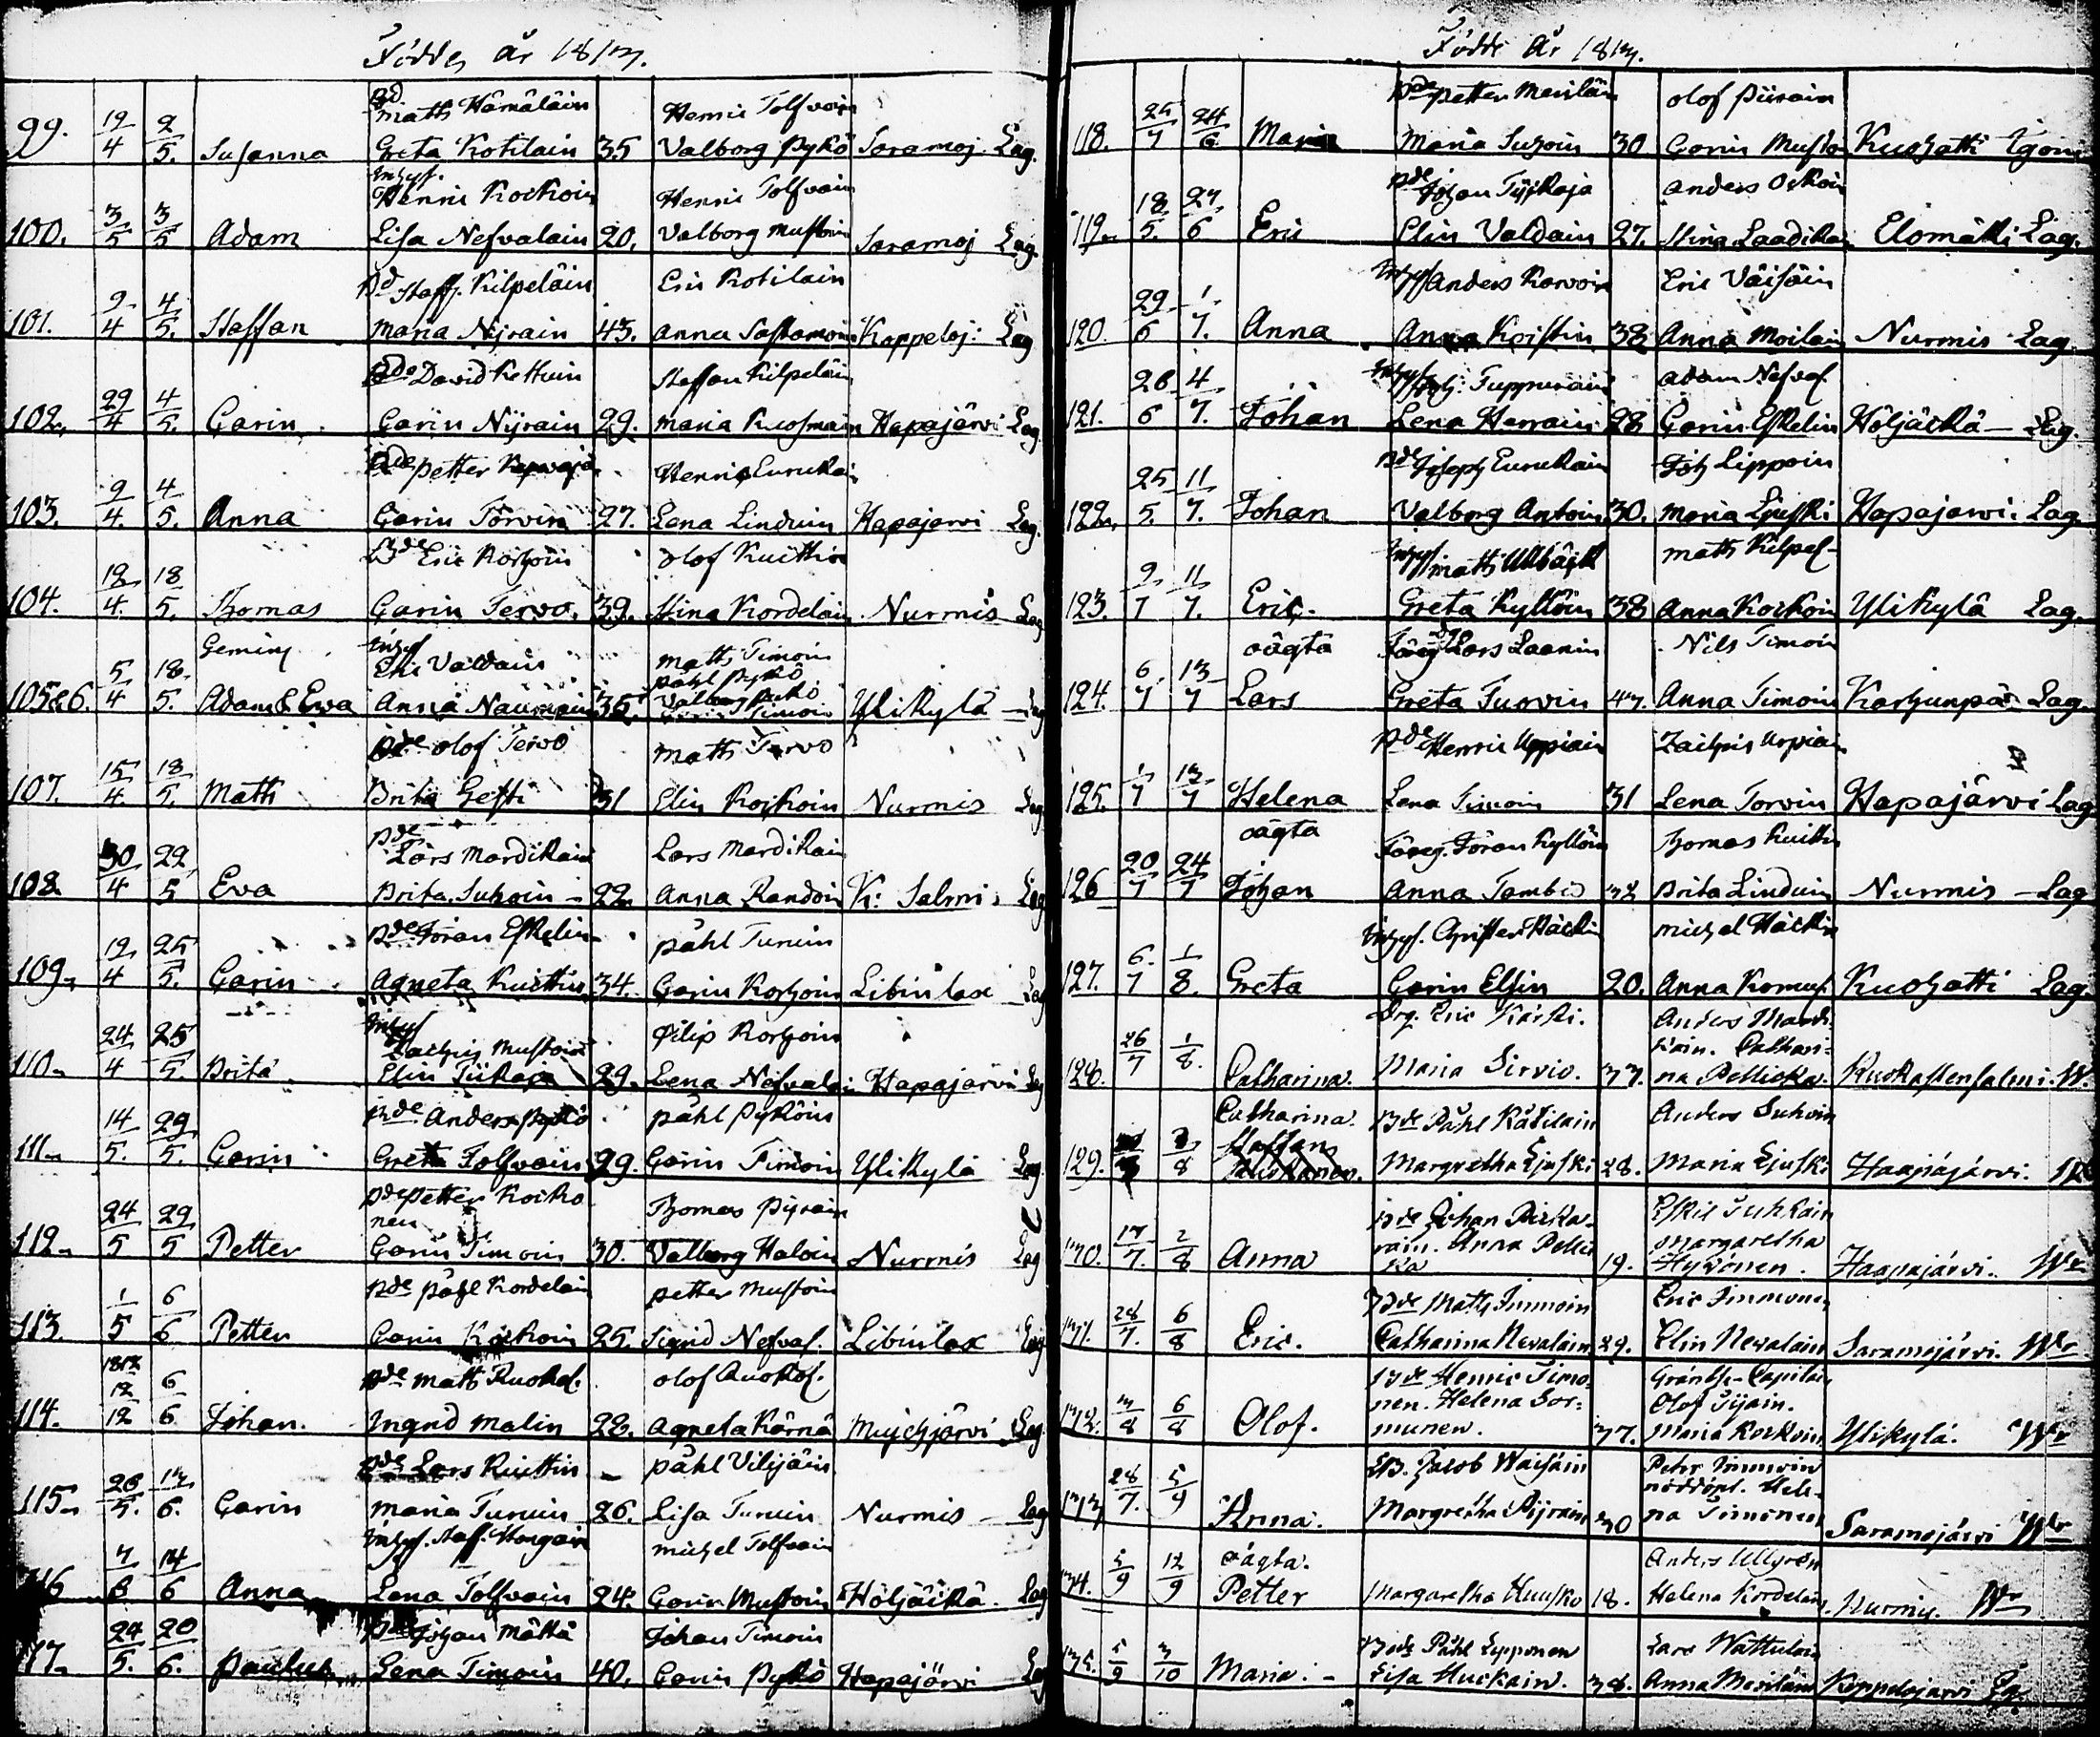 Födde år 1813.
99. 19/4 2/5. Susanna Bd Matts Hämäläin Greta Kotilain 35 Henric Tolfvain Valborg Pykö Saramoj. Lag.
100. 3/5 3/5 Adam Inhys. Henric Kockoin Lisa Nefvalain 20. Henric Tolfvain Valborg Mustoin Saramoj Lag.
101. 9/4 4/5. Staffan Bd Staff. Kilpeläin Maria Nijrain 43. Eric Kotilain Anna Sastamoin Kappeloj: Lag
102. 29/4 4/5. Carin Bde David Kettuin Carin Nijrain 29. Staffan Kilpeläin Maria Kuosmain Hapajärvi Lag
103. 9/4. 4/5. Anna Bde Petter Carin Törvin 27. Henric Eurukain Lena Linduin Hapajarvi Lag.
104. 19/4. 18/5. Thomas Bde Eric Korhoin Carin Tervo. 39. Olof Kuittin Stina Kordelain Nurmis Lag
105&6. 5/4 18/5. Geminj Adam & Eva Inhys Eric Valdain Anna Naumain 35. Matts Timoin Påhl Pykö Valborg Pykö Carin Timoin Ylikylä Lag
107. 15/4. 18/5. Matts Bde Olof Tervo Brita Gesti 31 Matts Tervo Elin Kockoin Nurmis Lag
108. 30/4 22/5 Eva Bde Lars Mardikain Brita Suhoin 22. Lars Mardikain Anna Randoin K: Salmi. Lag
109. 19/4 25/5. Carin Bde Jöran Eskelin Agneta Kuittin 34. Påhl Turuin Carin Korhoin Libinlax Lag
110. 24/4 25/5. Brita Inhys Zachris Mustoin Elin Tiikaja 29. Filip Korhoin Lena Nefvalain Hapajarvi Lag
111. 14/5. 29/5. Carin Bde Anders Pykö Greta Tolfvain 29. Påhl Pyköin Carin Timoin Ylikylä Lag.
112. 24/5 29/5 Petter Bde Petter Kockonen Carin Timoin 30. Thomas Pijrain Valborg Haloin Nurmis Lag
113. 1/5 6/6 Petter Bde Påhl Kordelain Carin Kockoin 25. Petter Mustoin Sigrid Nefval. Libinlax Lag
114. 1812 12/12 6/6 Johan. Bde Matts Ruokol. Ingrid Malin 22. Olof Ruokol. Agneta Kärnä Mujehjärvi Lag.
115. 26/5. 13/6. Carin Bde Lars Kuittin Maria Turuin 26. Påhl Vilijäin Lisa Turuin Nurmis Lag
116 7/6 14/6 Anna Inhys. Staf. Lena Tolfvain 24. Michel Tolfvain Carin Mustoin Höljäckä. Lag
117. 24/5. 20/6. Paulus Bde Johan Mättä Lena Timoin 40. Johan Timoin Carin Pykö Hapajärvi Lag
Födde år 1813.
118. 25/4 24/6 Maria Bde Petter Meriläin Maria Suhoin 30 Olof Piirain Carin Musto Kuohatti
119. 18/5. 27/6 Eric Bde Johan Tijkaja Elin Valdain 27. Anders Stina Laadikain Elomäki Lag.
120. 29/6 1/7. Anna Inhys Anders Korvoin Anna Koistin 38 Eric Väisäin Anna Moilain Nurmis Lag.
121. 26/6 4/7. Johan Inhys Joh: Tuppurain Lena Harrain 28 Adam Nefval Carin Eskelin Höljäckä Lag.
122. 25/5. 11/7. Johan Bde Joseph Eurukain Valborg Antoin 30. Joh Lippoin Maria Ljuski Hapajarvi. Lag
123. 9/7 11/7. Eric. Inhys. Matts Greta Kyllöin 38 Matts Kilpel Anna Kockoin Ylikylä Lag.
124. 6/7 13/7 oägta Lars Föreg. Lars Laanin Greta Turvin 47. Nils Timoin Anna Timoin Karhunpä Lag.
125. 1/7 13/7 Helena Bde Henric Uppiain Lena Timoin 31 Zachris Urpiain Lena Torvin Hapajärvi Lag
126 20/7 24/7 oägta Johan Föreg. Jöran Kyllöin Anna Tambio 32 Thomas Kuitti Brita Linduin Nurmis Lag
127. 6/7 1/8. Greta Inhys. Christer Häckin Carin Elfin 20. Michel Häckin Anna Komul. Kuohatti Lag.
128. 26/7 1/8. Catharina. Drg. Eric Kärki. Maria Sirvio. 37. Anders Mardikain. Catharina Pellicka. Kuokastensalmi. W.
129. 2/8 Catharina. Bde Påhl Kätilain Margretha Ljuski 28. Anders Suhoin Maria Ljuski Haapajärvi. Wr
130. 17/7. 2/8 Anna Bde Johan Pickarain. Anna Pellicka 19. Eskil Tuhkain Margaretha Hyvönen. Haapajärvi. Wr
131. 28/7. 6/8 Eric. Bde Matts Timmoin Catharina Nevalain 29. Eric Timmonen Elin Nevalain Saramojärvi. Wr
132. 3/8 6/8 Olof. Bde Henric Timonen. Helena Sormunen. 37. Gräntse-Capitain Olof Tijain. Maria Kockoin Ylikylä. Wr
133 28/7. 5/9 Anna. Bd. Jacob Waisäin Margretha Pijrain 30 Petr Timmoin nöddöpt. Helena Timonen Saramojärvi Wr
134. 5/9 12/9 oägta. Petter Margaretha Huusko 18. Anders Ullgren Helena Kordelain. Nurmis. Wr
135. 5/9 3/10 Maria. Bde Påhl Lipponen Lisa Huckain. 38. Lars Wattulain Anna Meriläin Keppelojärvi Lg.